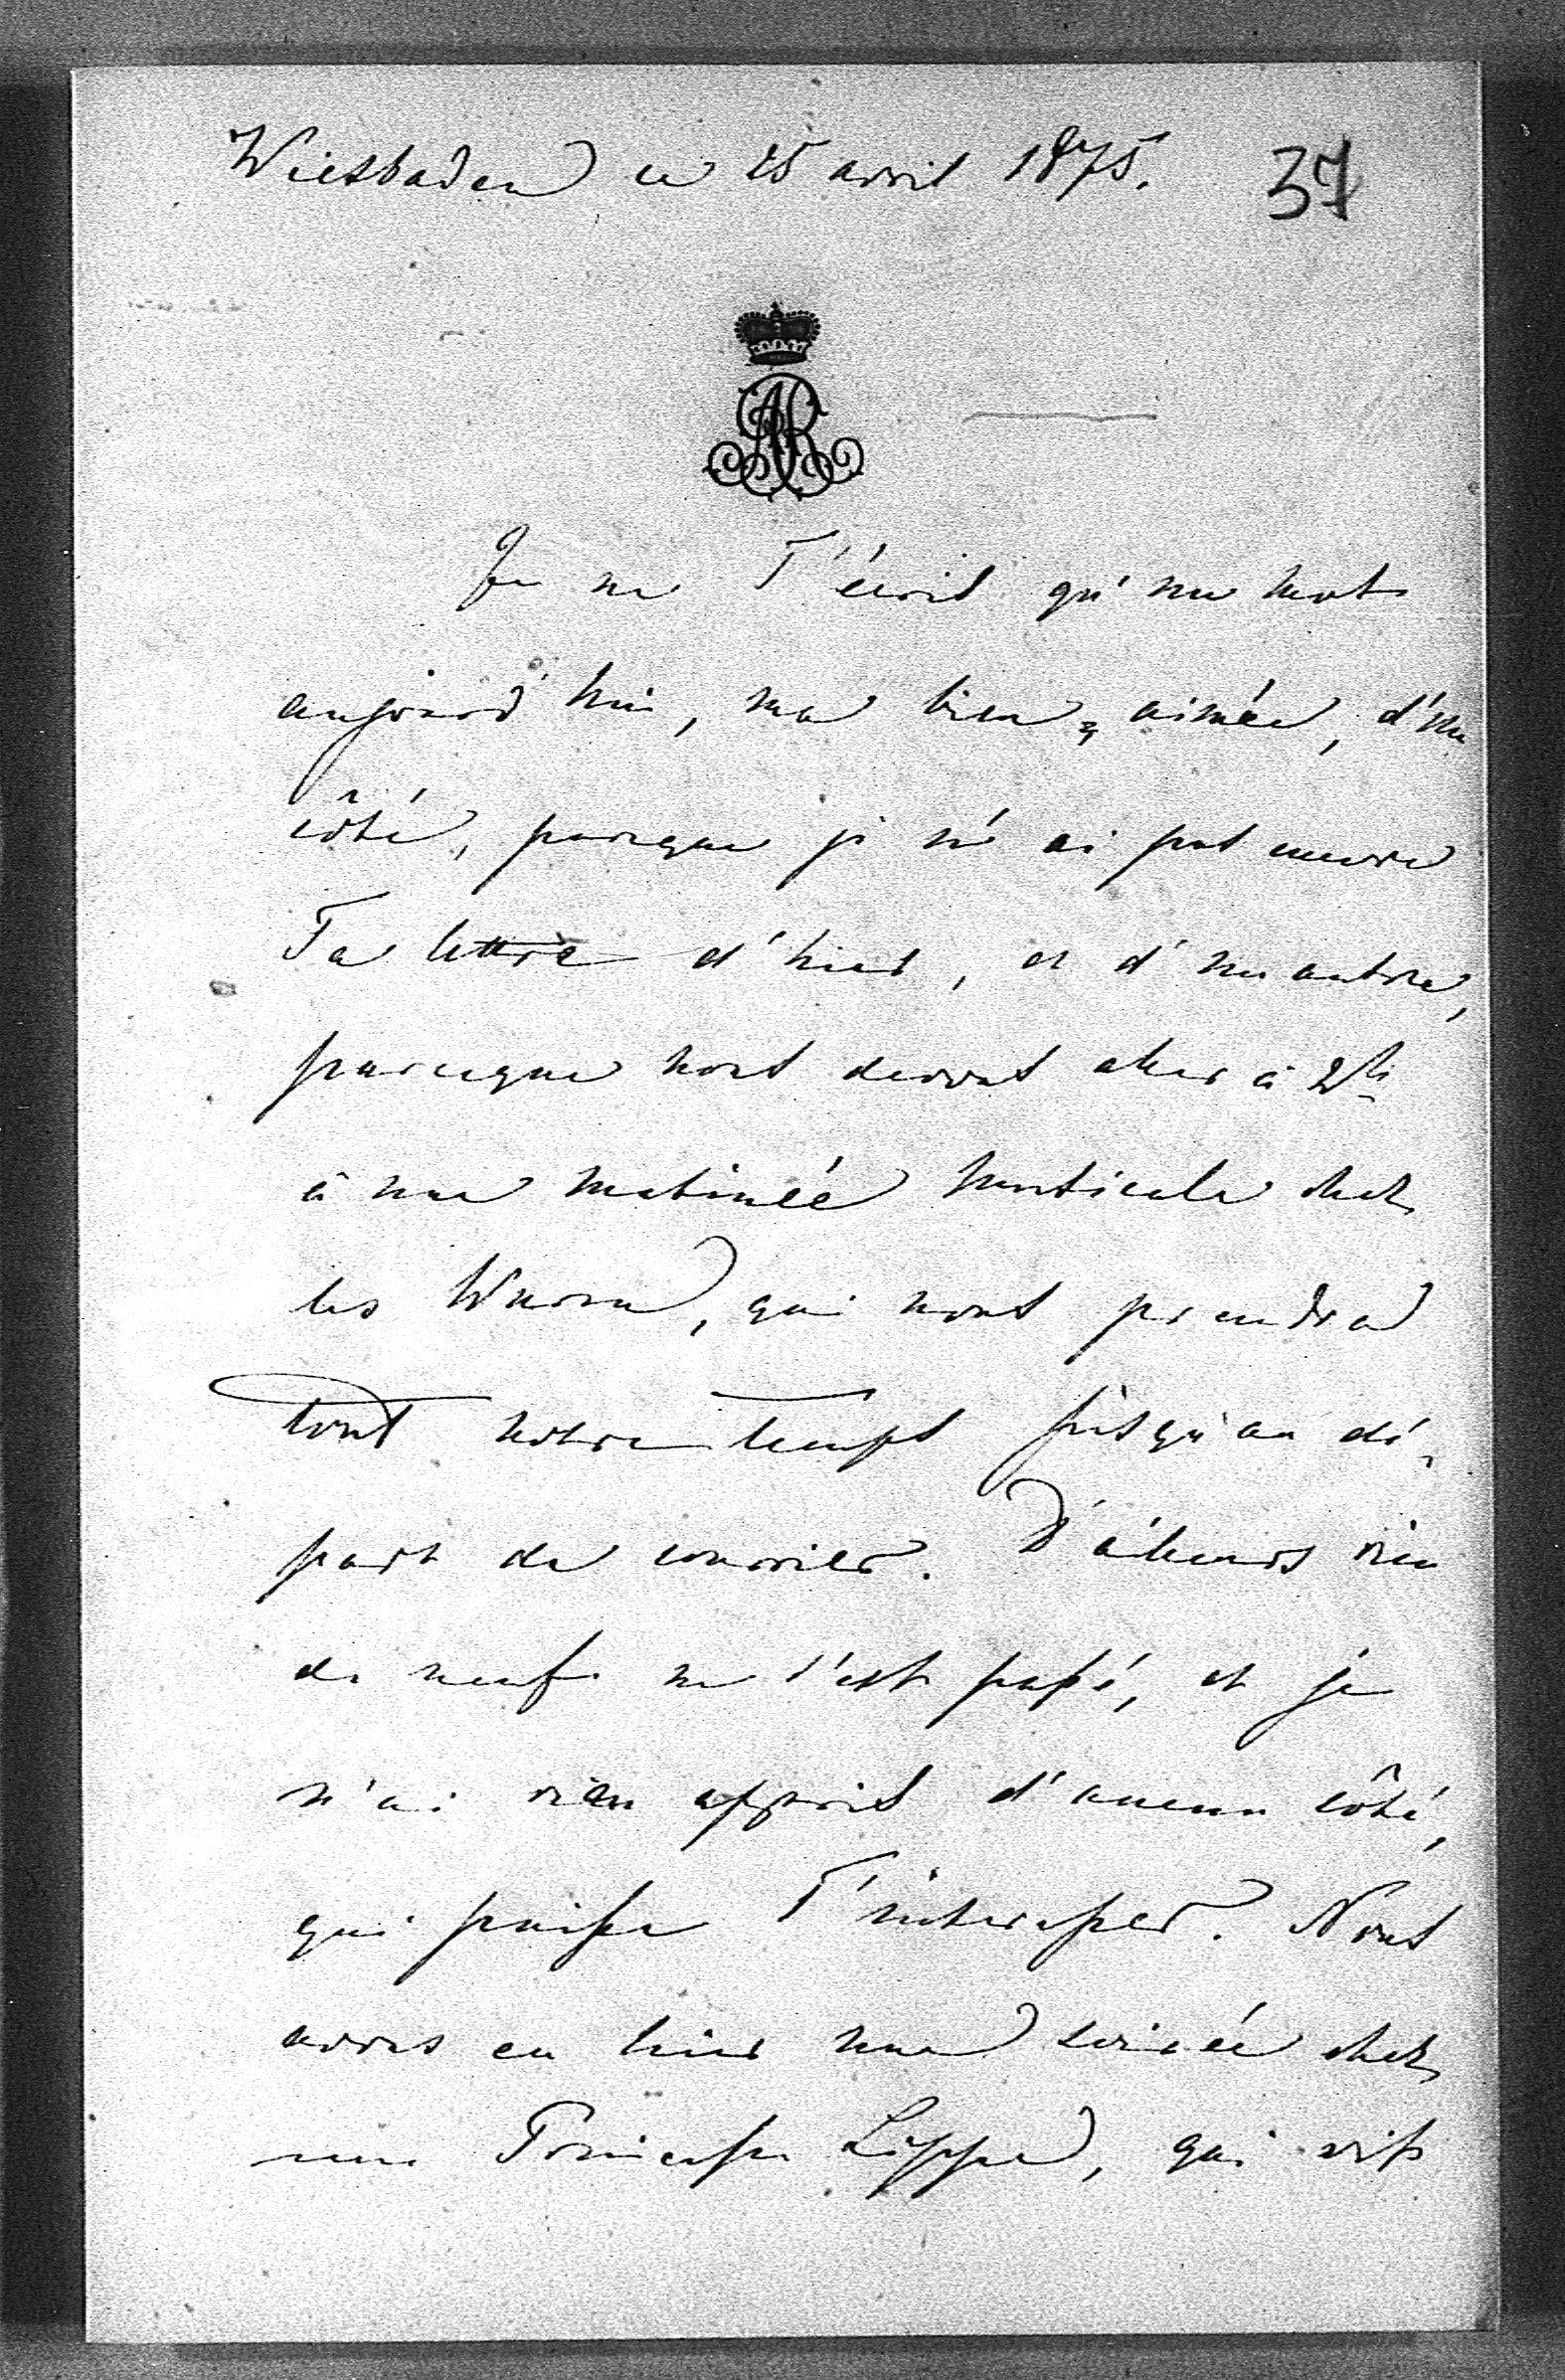 Wiesbaden ce 25 avril 1875. 37
AR
Je ne T'écris qu'un mot
aujourd'hui, ma bien-aimée, d'un
côté, parceque je n'ai pas encore
Ta lettre d'hier, et d'un autre,
parceque nous devons aller à 2 h.
à une matinée musicale chez
les Wurm, qui nous prendra
tout notre temps jusqu'au dé-
part du courrier. D'ailleurs rien
de neuf ne s'est passé, et je
n'ai rien appris d'aucun côté,
qui puisse T'intéresser. Nous
avons eu hier une soirée chez
une Princesse Lippe, qui vit